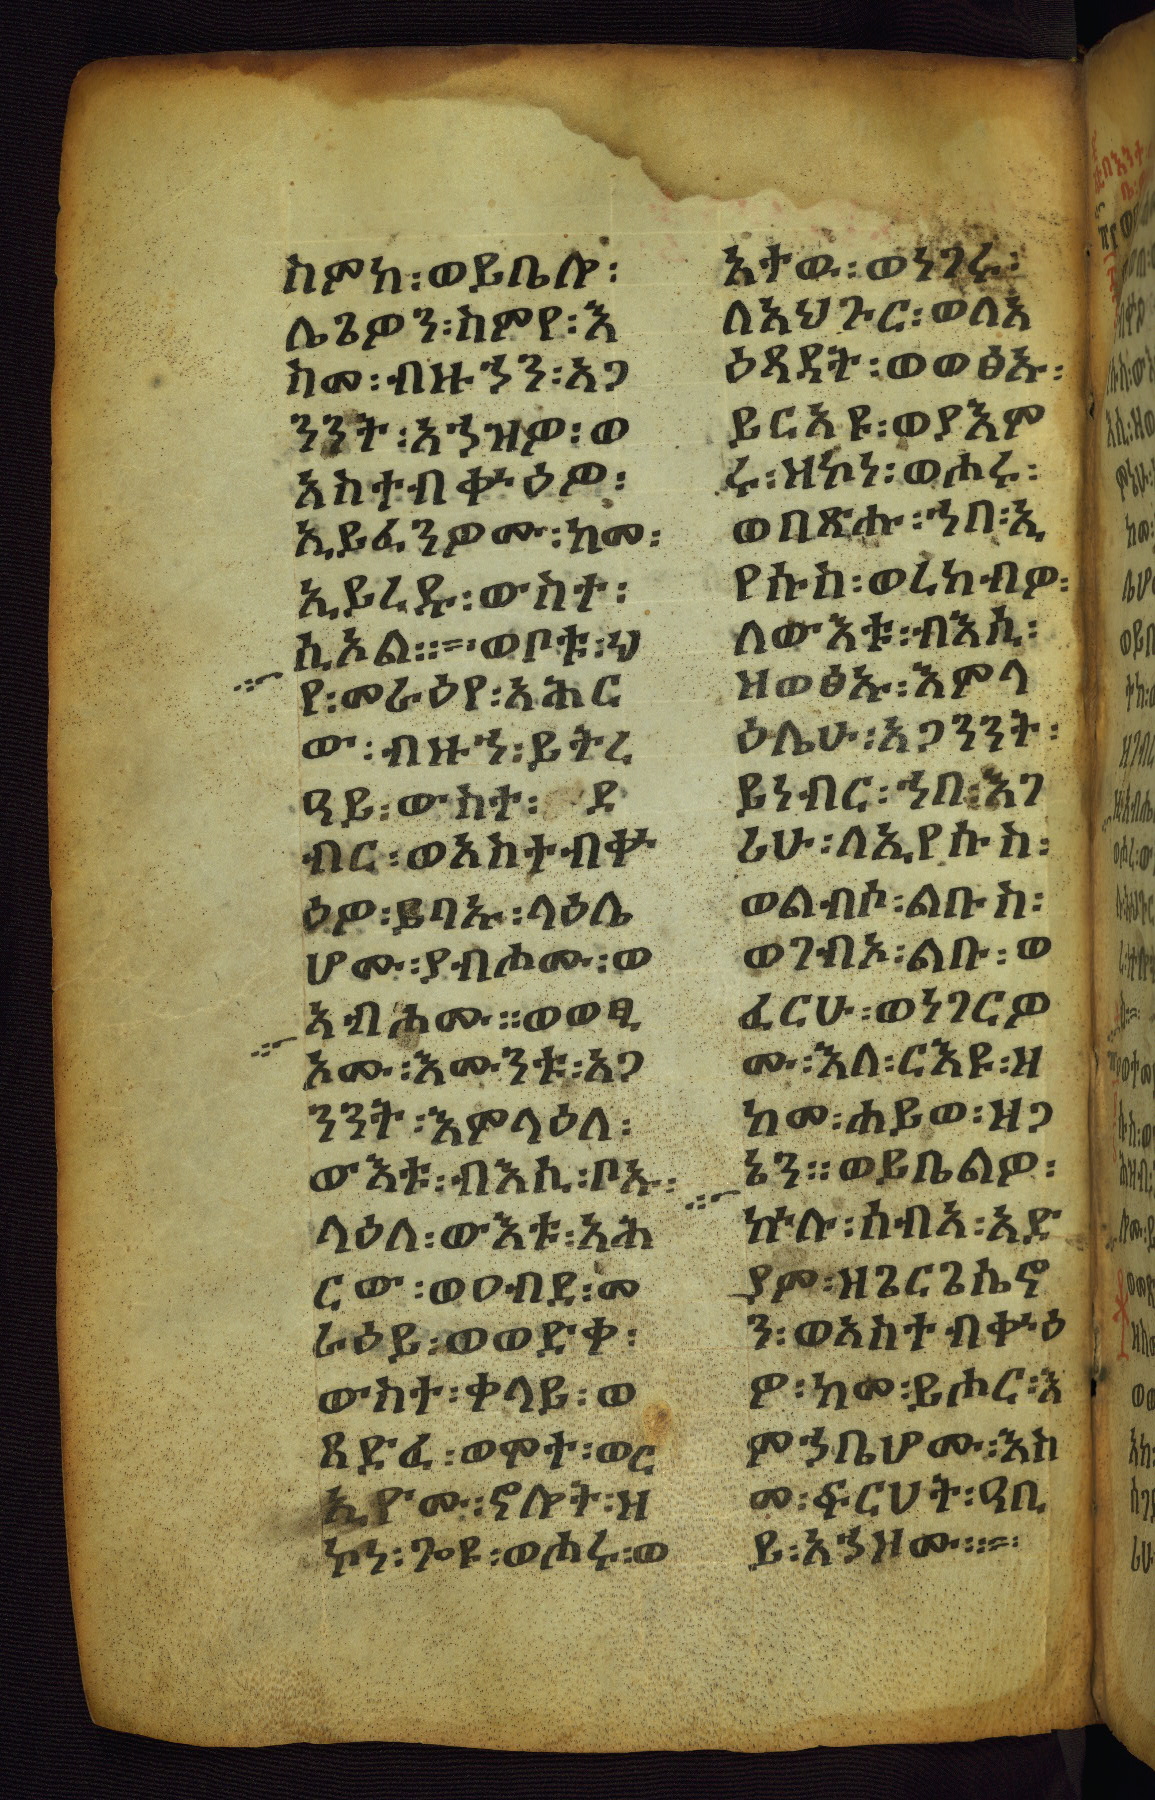 ስምከ፡ወይቤሎ፡
ሌጌዎን፡ስምየ፡እ
ስመ፡ብዙኀን፡አጋ
ንንት፡አኀዝዎ፡ወ
አስተብቍዕዎ፡
ኢይፈንዎሙ፡ከመ፡
ኢይረዱ፡ውስተ፡
ሲኦል።፡ወቦቱ፡ህ
የ፡መራዕየ፡አሕር
ው፡ብዙኀ፡ይትረ
ዓይ፡ውስተ፡ ደ
ብር፡ወአስተብቍ
ዕዎ፡ይባኡ፡ላዕሌ
ሆሙ፡ያብሖሙ፡ወ
አብሖሙ።ወወፂ
ኦሙ፡እሙንቱ፡አጋ
ንንት፡እምላዕለ፡
ውእቱ፡ብእሲ፡ቦኡ፡
ላዕለ፡ውእቱ፡አሕ
ርው፡ወዐብደ፡መ
ራዕይ፡ወወድቀ፡
ውስተ፡ቀላይ፡ወ
ጸድፈ፡ወሞተ፡ወር
እዮሙ፡ኖሎት፡ዘ
ኮነ፡ጐዩ፡ወሖሩ፡ወ
አተዉ፡ወነገሩ፡
ለአህጉር፡ወለአ
ዕጻዳት፡ወወፅኡ፡
ይርአዩ፡ወያእም
ሩ፡ዝኮነ፡ወሖሩ፡
ወበጽሑ፡ኀበ፡ኢ
የሱስ፡ወረከብዎ፡
ለውእቱ፡ብእሲ፡
ዘወፅኡ፡እምላ
ዕሌሁ፡አጋንንት፡
ይነብር፡ኀበ፡እገ
ሪሁ፡ለኢየሱስ፡
ወልብሶ፡ልቡስ፡
ወገብአ፡ልቡ፡ወ
ፈርሁ፡ወነገርዎ
ሙ፡እለ፡ርእዩ፡ዘ
ከመ፡ሐይወ፡ዘጋ
ኔን።ወይቤልዎ፡
ኵሉ፡ሰብአ፡አድ
ያም፡ዘጌርጌሴኖ
ን፡ወአስተብቍዕ
ዎ፡ከመ፡ይሖር፡እ
ምኀቤሆሙ፡እስ
መ፡ፍርሀት፡ዓቢ
ይ፡አኀዘሙ።፡